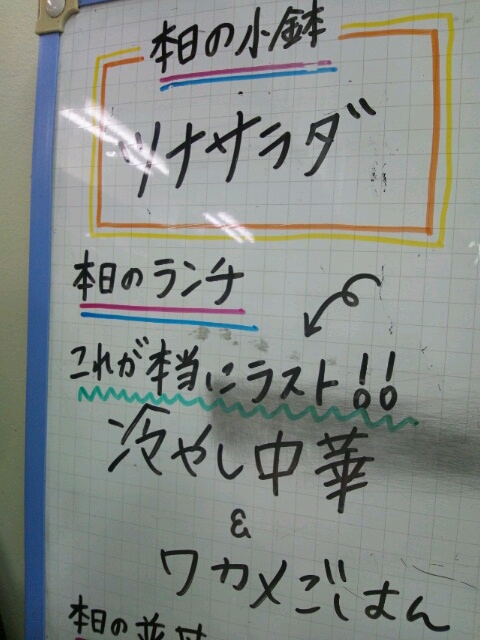 本日の小鉢
ツナサラダ
本日のランチ
これが本当にラスト!!
冷やし中華
&
ワカメごはん
本日の